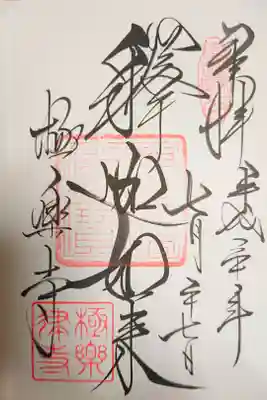 奉拝 平成 年
七月二十七日
釋迦如来
極樂寺
極樂
律寺